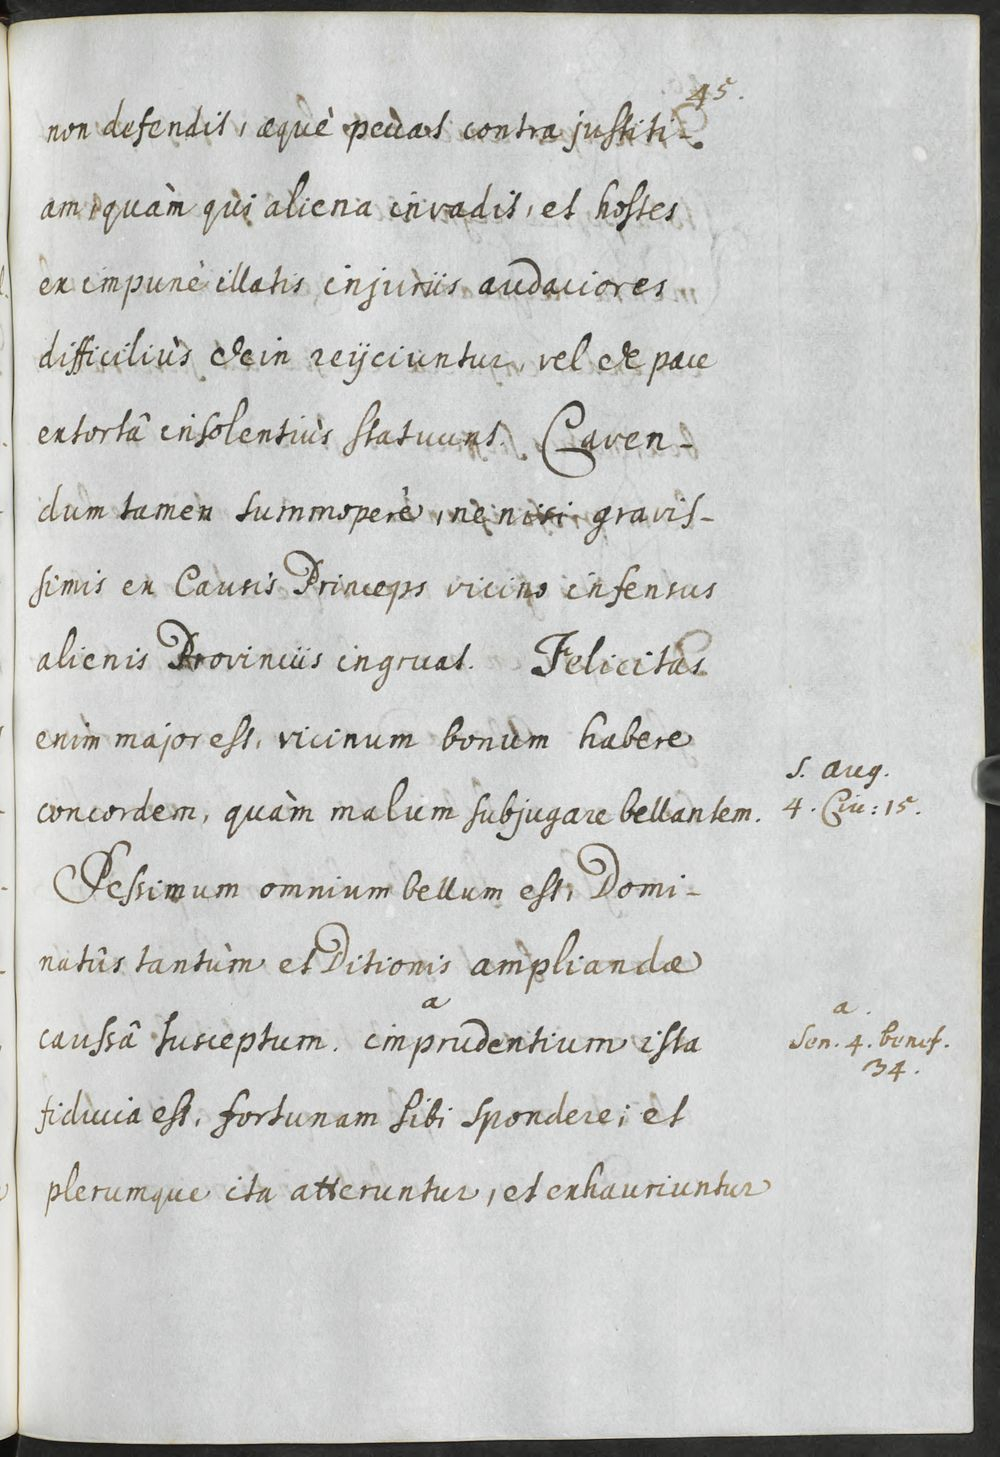 45.
non defendit, æquè peccat contra justiti-
am, quàm qui aliena invadit, et hostes
ex impunè illatis injuriis audaciores
difficiliùs dein reijciuntur, vel de pace
extortâ insolentiùs statuunt. Caven-
dum tamen summoperè, ne nisi gravis-
simis ex Causis Princeps vicino infensus
alienis Provinciis ingruat. Felicitas
enim major est, vicinum bonum habere
concordem, quàm malum subjugare bellantem.
S. Aug.
4. Civ: 15.
Pessimum omnium bellum est, Domi-
natûs tantùm et Ditionis ampliandæ
caussâ susceptum. a imprudentium ista
a.
Sen. 4. benef.
34.
fiducia est, fortunam sibi spondere; et
plerumque ita atteruntur, et exhauriuntur